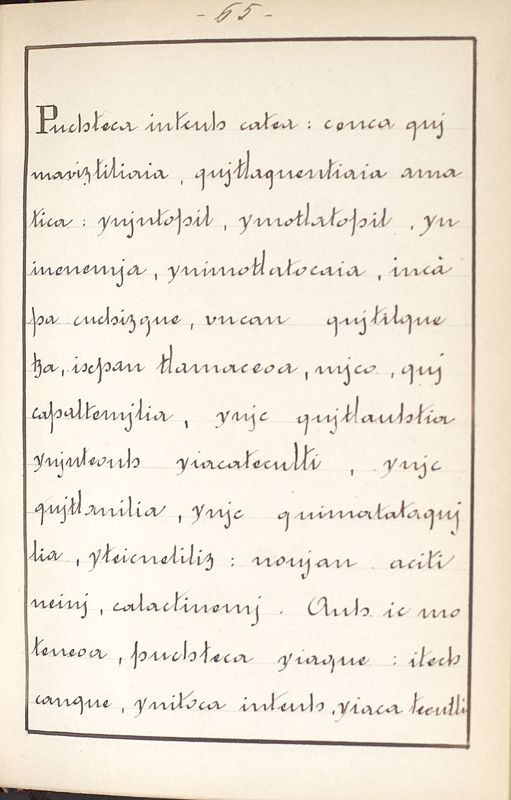 - 65 -
Puchteca inteuh catca : cenca quj
maviztiliaia , qujtlaquentiaia ama
tica : ynjntopil , ymotlatopil , yn
inenemja , ynimotlatocaia , incā
pa cuchizque , vncan qujtilque
tza, ixpan tlamaceoa, mjco , quj
capaltemjlia , ynjc qujtlauhtia
ynjnteouh yiacatecutli , ynjc
qujtlanilia , ynjc quimatataquj
lia , yteicneliliz : noujan aciti
neinj , calactinemj . Auh ic mo
teneoa , puchteca yiaque : itech
canque , ynitoca inteuh , yiaca tecutli